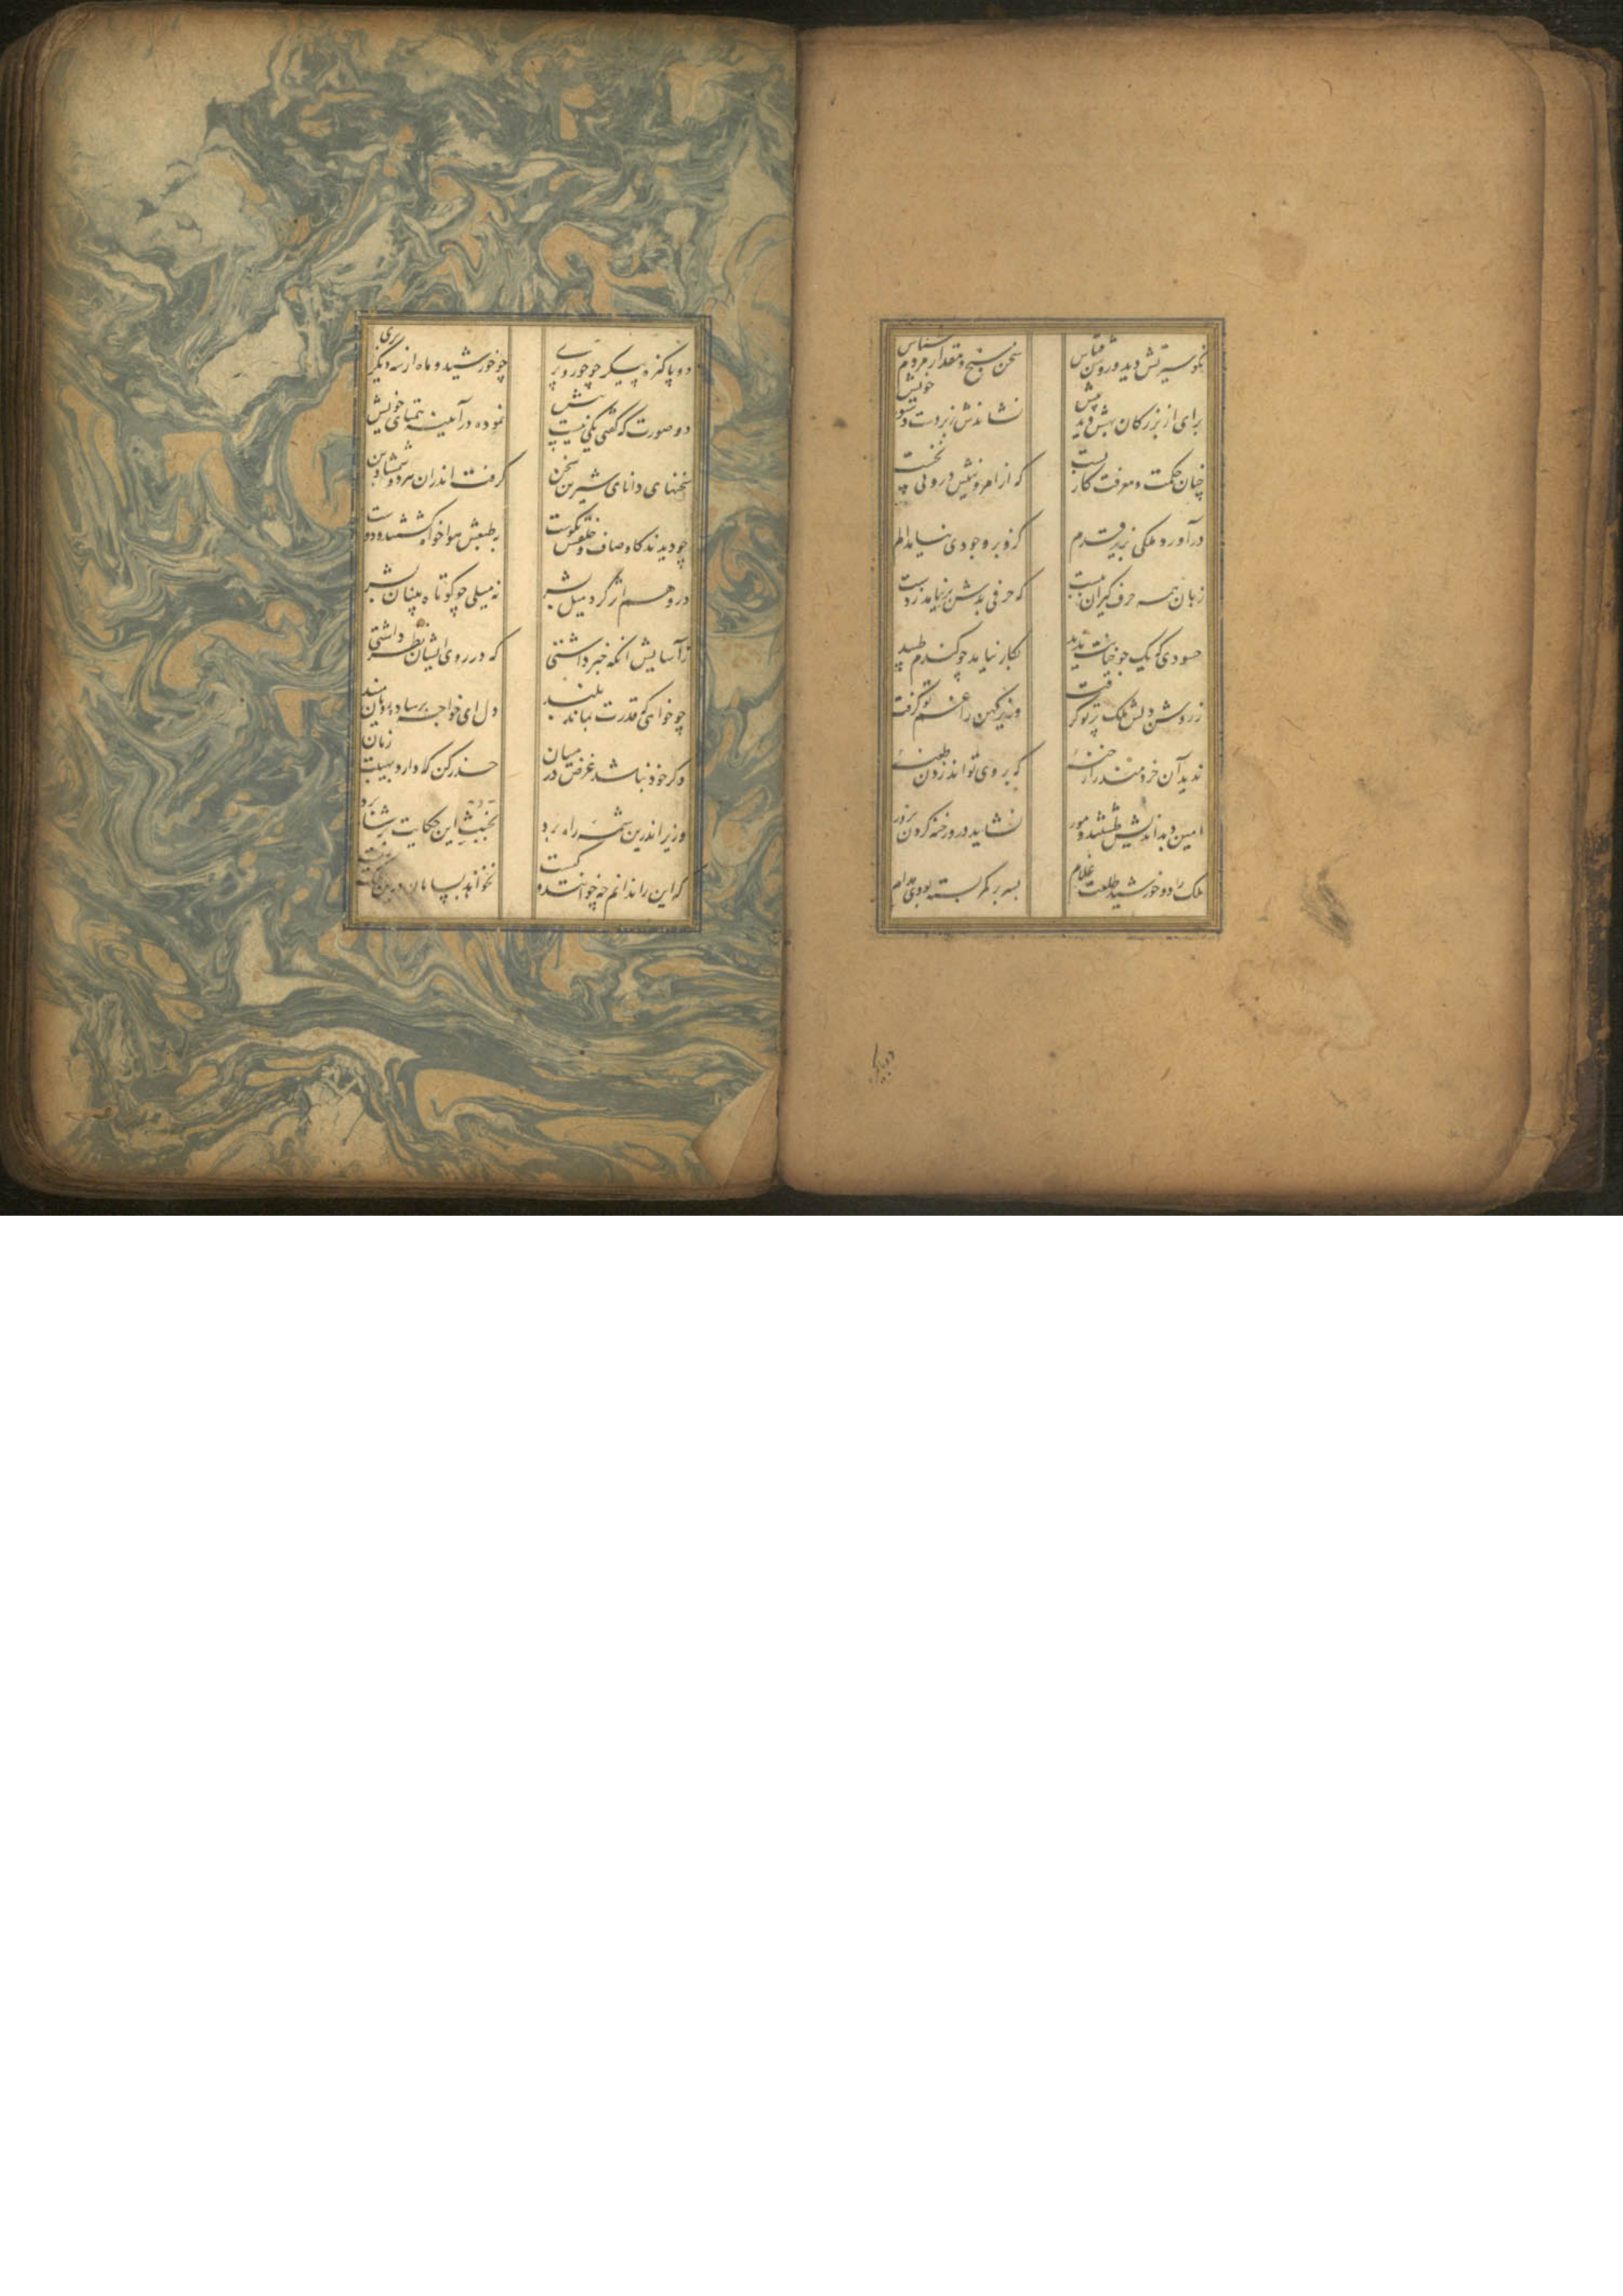 نکو سیرتش دید و روشن قیاس سخن سنج و مقدار مردم شناس
برای از بزرگان بهش دید و پیش نشاندش زبردست دستور خویش
چنان حکمت و معرفت کار بست که از امر و نهیش درونی نخست
درآورد ملکی بزیر قلم کزو بر وجودی نیامد الم
زبان همه حرف گیران ببست که حرفی بدش برنیامد ز دست
حسودی که یک جو خیانت ندید بکار نیامد چو گندم طپید
ز روشن دلش ملک پرتو گرفت وزیر کهن را غم نو گرفت
ندید آن خردمند را رخنه که بر وی تواند زدن طعنه
امین و بداندیش طشتند و مور نشاید درو رخنه کردن بزور
ملک را دو خورشید طلعت غلام بسر بر کمر بسته بودی مدام
دو پاکیزه
دو پاکیزه پیکر چو حور و پری چو خورشید و ماه از سه دیگر بری
دو صورت که گفتی یکی نیست بیش نموده در آیینه همتای خویش
سخنهای دانای شیرین سخن گرفت اندران هر دو شمشاد بن
چو دیدند کاوصاف و خلقش نکوست بطبعش هواخواه گشتند و دوست
درو هم اثر کرد میل بشر نه میلی چو کوتاه بینان بشر
از آسایش آنگه خبر داشتی که در روی ایشان نظر داشتی
چو خواهی که قدرت بماند بلند دل ای خواجه بر ساده رویان مبند
وگر خود نباشد غرض در میان حذر کن که دارد بهیبت زیان
وزیر اندرین شمه راه برد بخبث این حکایت بر شاه برد
که این را ندانم چه خوانند و کیست نخواهد بسامان درین ملک زیست